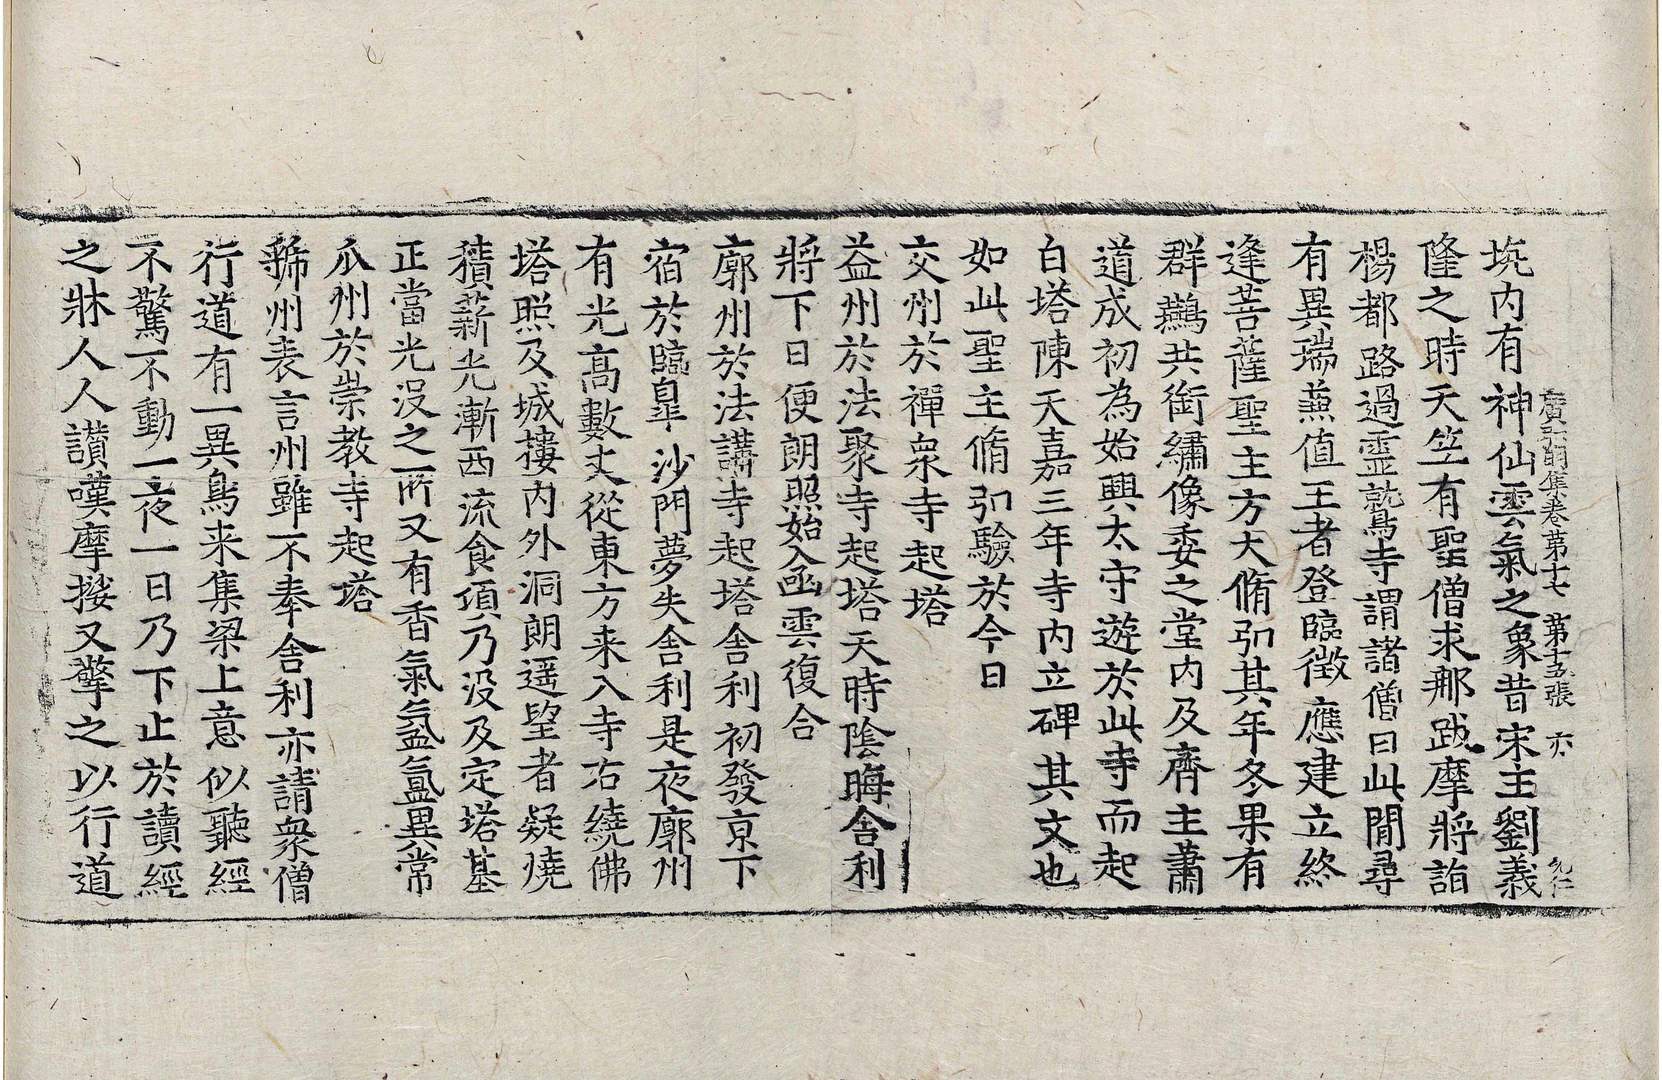 廣弘明集卷第十七 第十五張 亦 允仁
垸内有神仙雲氣之象昔宋主劉義
隆之時天竺有聖僧求那跋摩將詣
楊都路過靈鷲寺謂諸僧曰此間尋
有異瑞兼值王者登臨徵應建立終
逢菩薩聖主方大脩𢎞其年冬果有
群鷰共銜繡像委之堂内及齊主蕭
道成初為始興太守遊於此寺而起
白塔陳天嘉三年寺内立碑其文也
如此聖主脩𢎞驗於今日
交州於禪衆寺起塔
益州於法聚寺起塔天時陰晦舍利
將下日便朗照始入函雲復合
廓州於法講寺起塔舍利初發京下
宿於臨皐沙門夢失舍利是夜廓州
有光高數丈從東方来入寺右繞佛
塔照及城樓内外洞朗遥望者疑燒
積薪光漸西流食頃乃没及定塔基
正當光没之所又有香氣氤氳異常
瓜州於崇教寺起塔
虢州表言州雖不奉舍利亦請衆僧
行道有一異鳥来集梁上意似聽經
不驚不動一夜一日乃下止於讀經
之牀人人讃嘆摩挱又擎之以行道